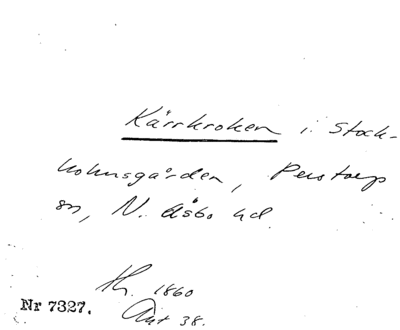 Kärrkroken i Stock-
holmsgården, Perstorp
sn, N. Åsbo hd
1860
Ant 38.
Nr 7327.